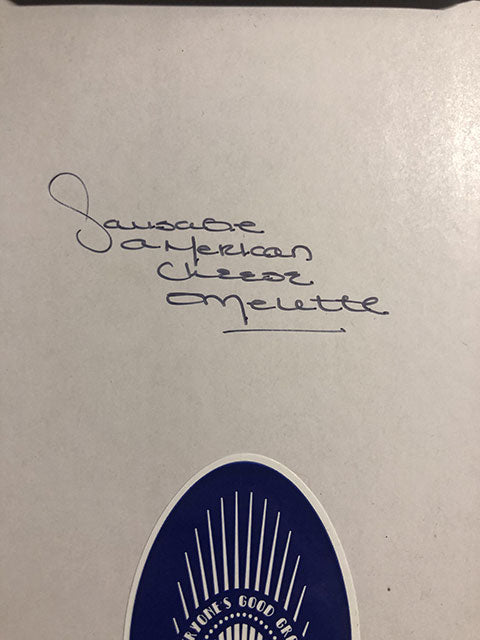 Sausage
american
cheese
omelette
RYONE'S GOOD GRO